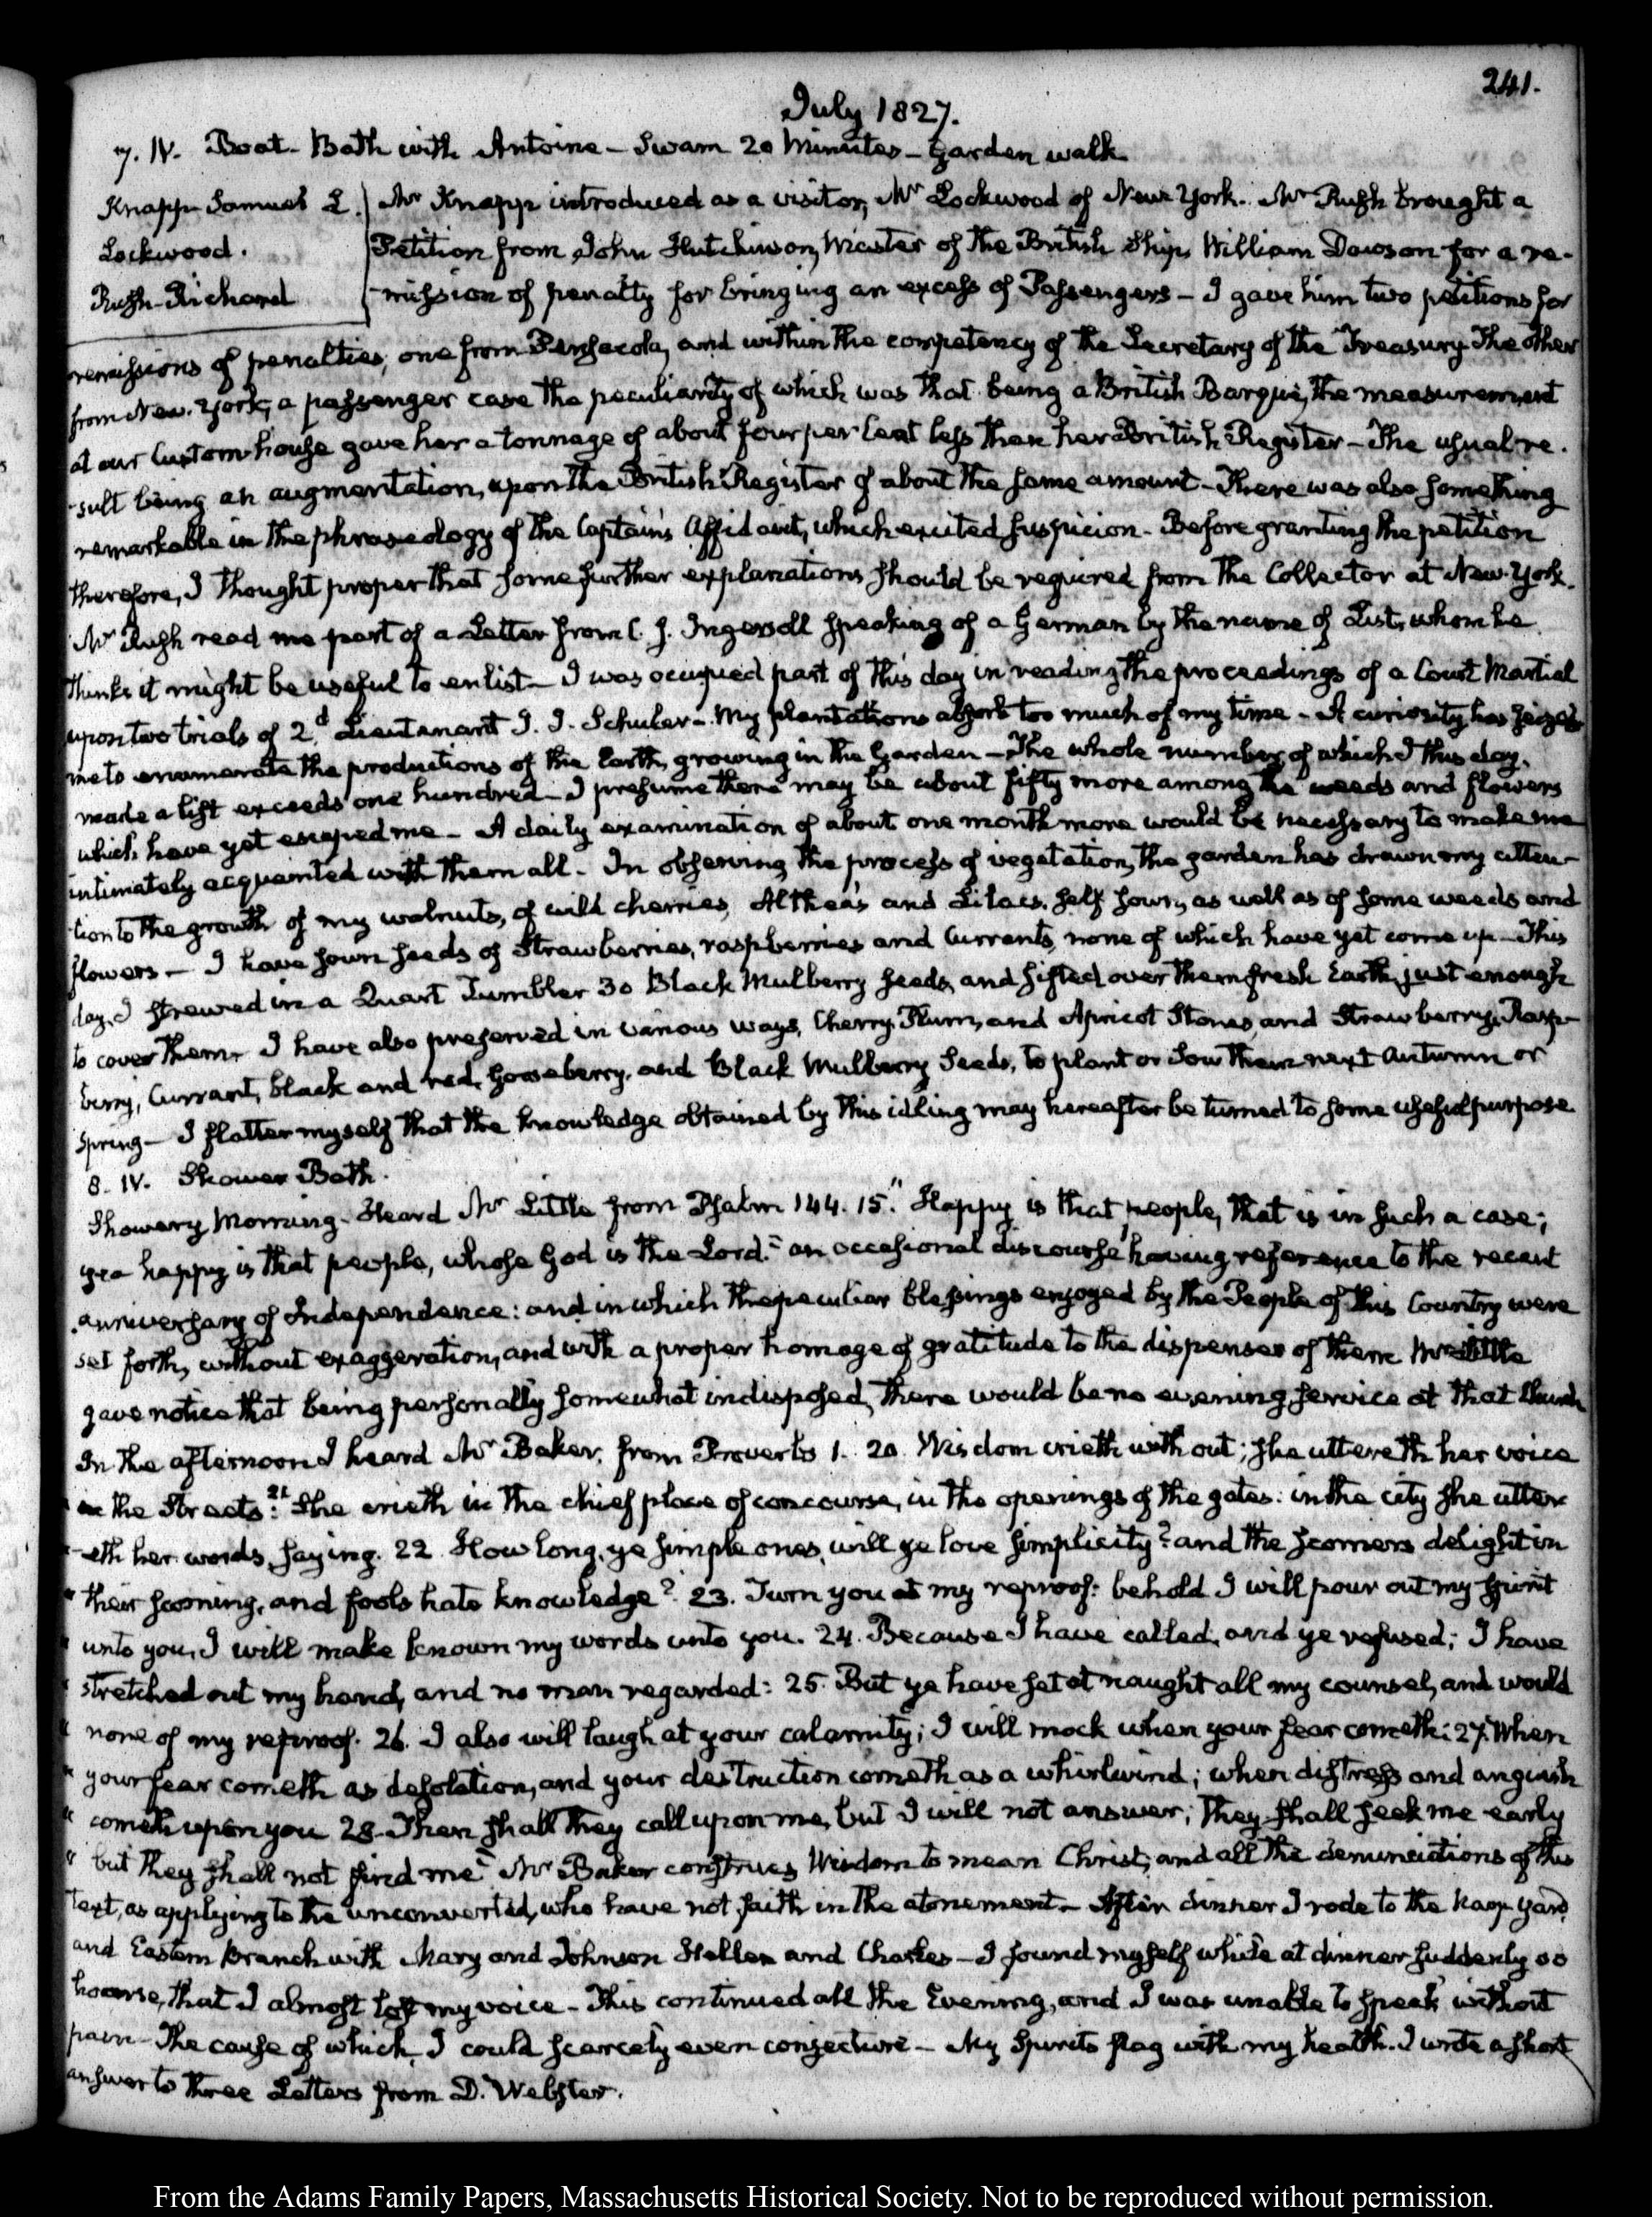 241.
July 1827.
7. IV. Boat-Bath with Antoine — Swam 20 Minutes — Garden walk
Knapp Samuel L.
Lockwood.
Rush-Richard
Mr Knapp introduced as a visitor, Mr Lockwood of New York. Mr Rush brought a
Petition from John Hutchinson, Master of the British Ship, William Dawson for a re-
-mission of penalty for bringing an excess of Passengers — I gave him two petitions for
remissions of penalties, one from Pensacola, and within the competency of the Secretary of the Treasury The other
from New-York, a passenger case the peculiarity of which was that being a British Barque, the measurement
at our Custom-house gave her a tonnage of about four per Cent less than her British Register — The usual re-
-sult being an augmentation, upon the British Register of about the same amount — There was also something
remarkable in the phraseology of the Captain's Affidavit, which excited suspicion — Before granting the petition
therefore, I thought proper that some further explanations should be required from the Collector at New-York.
Mr Rush read me part of a Letter from C. J. Ingersoll speaking of a German by the name of List, whom he
thinks it might be useful to enlist — I was occupied part of this day in reading the proceedings of a Court Martial
upon two trials of 2d Lieutenant I. I. Schuler — My plantations absorb too much of my time — A curiosity has seized
me to enumerate the productions of the Earth, growing in the Garden — The whole number of which I this day,
made a list exceeds one hundred — I presume there may be about fifty more among the weeds and flowers
which have yet escaped me — A daily examination of about one month more would be necessary to make me
intimately acquainted with them all — In observing the process of vegetation, the garden has drawn my atten-
-tion to the growth of my walnuts, of wild cherries, Althea's and Lilacs, self sown, as well as of some weeds and
flowers — I have sown seeds of Strawberries, raspberries and Currants, none of which have yet come up — This
day, I strewed in a Quart Tumbler 30 Black Mulberry seeds, and sifted over them fresh Earth, just enough
to cover them. I have also preserved in various ways, Cherry, Plum, and Apricot Stones, and Strawberry, Rasp-
berry, Currant, black and red, Gooseberry, and Black Mulberry Seeds, to plant or sow them next Autumn or
Spring — I flatter myself that the knowledge obtained by this idling may hereafter be turned to some useful purpose
8. IV. Shower Bath.
Showery Morning — Heard Mr Little from Psalm 144. 15. "Happy is that people, that is in such a case;
yea happy is that people, whose God is the Lord." an occasional discourse having reference to the recent
anniversary of Independence: and in which the peculiar blessings enjoyed by the People of this Country were
set forth, without exaggeration, and with a proper homage of gratitude to the dispenser of them Mr Little
gave notice that being personally somewhat indisposed, there would be no evening service at that Church
In the afternoon I heard Mr Baker, from Proverbs 1. 20. Wisdom crieth without; she uttereth her voice
in the Streets: 21 She crieth in the chief place of concourse, in the openings of the gates: in the city she utter
-eth her words, saying. 22. How long, ye simple ones, will ye love simplicity? and the scorners delight in
" their scorning, and fools hate knowledge? 23. Turn you at my reproof: behold I will pour out my spirit
" unto you, I will make known my words unto you. 24. Because I have called, and ye refused; I have
" stretched out my hand, and no man regarded: 25. But ye have set at naught all my counsel, and would
" none of my reproof. 26. I also will laugh at your calamity; I will mock when your fear cometh: 27. When
" your fear cometh as desolation, and your destruction cometh as a whirlwind; when distress and anguish
" cometh upon you 28. Then shall they call upon me, but I will not answer; they shall seek me early
" but they shall not find me" Mr Baker construes Wisdom to mean Christ, and all the denunciations of this
text, as applying to the unconverted, who have not faith in the atonement — After dinner I rode to the Navy yard
and Eastern Branch with Mary and Johnson Hellen and Charles — I found myself while at dinner suddenly so
hoarse, that I almost lost my voice — This continued all the Evening, and I was unable to speak without
pain — The cause of which, I could scarcely even conjecture — My Spirits flag with my health. I wrote a short
answer to three Letters from D. Webster.
From the Adams Family Papers, Massachusetts Historical Society. Not to be reproduced without permission.